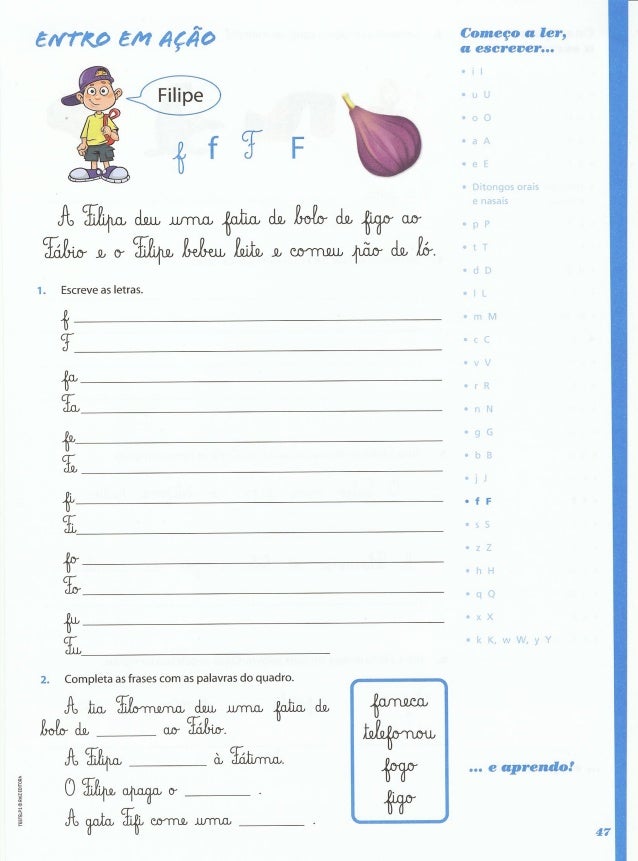 ENTRO EM AÇÃO
Filipe
f f F F
A Filipa deu uma fatia de bolo de figo ao
Fábio e o Filipe bebeu leite e comeu pão de ló.
1. Escreve as letras.
f
F
fa
Fa
fe
Fe
fi
Fi
fo
Fo
fu
Fu
2. Completa as frases com as palavras do quadro.
A tia Filomena deu uma fatia de
bolo de ________ ao Fábio.
A Filipa ________ à Fátima.
O Filipe apaga o ________ .
A gata Fifi come uma ________ .
faneca
telefonou
fogo
figo
Começo a ler,
a escrever...
• i I
• u U
• o O
• a A
• e E
• Ditongos orais
e nasais
• p P
• t T
• d D
• l L
• m M
• c C
• v V
• r R
• n N
• g G
• b B
• j J
• f F
• s S
• z Z
• h H
• q Q
• x X
• k K, w W, y Y
... e aprendo!
47